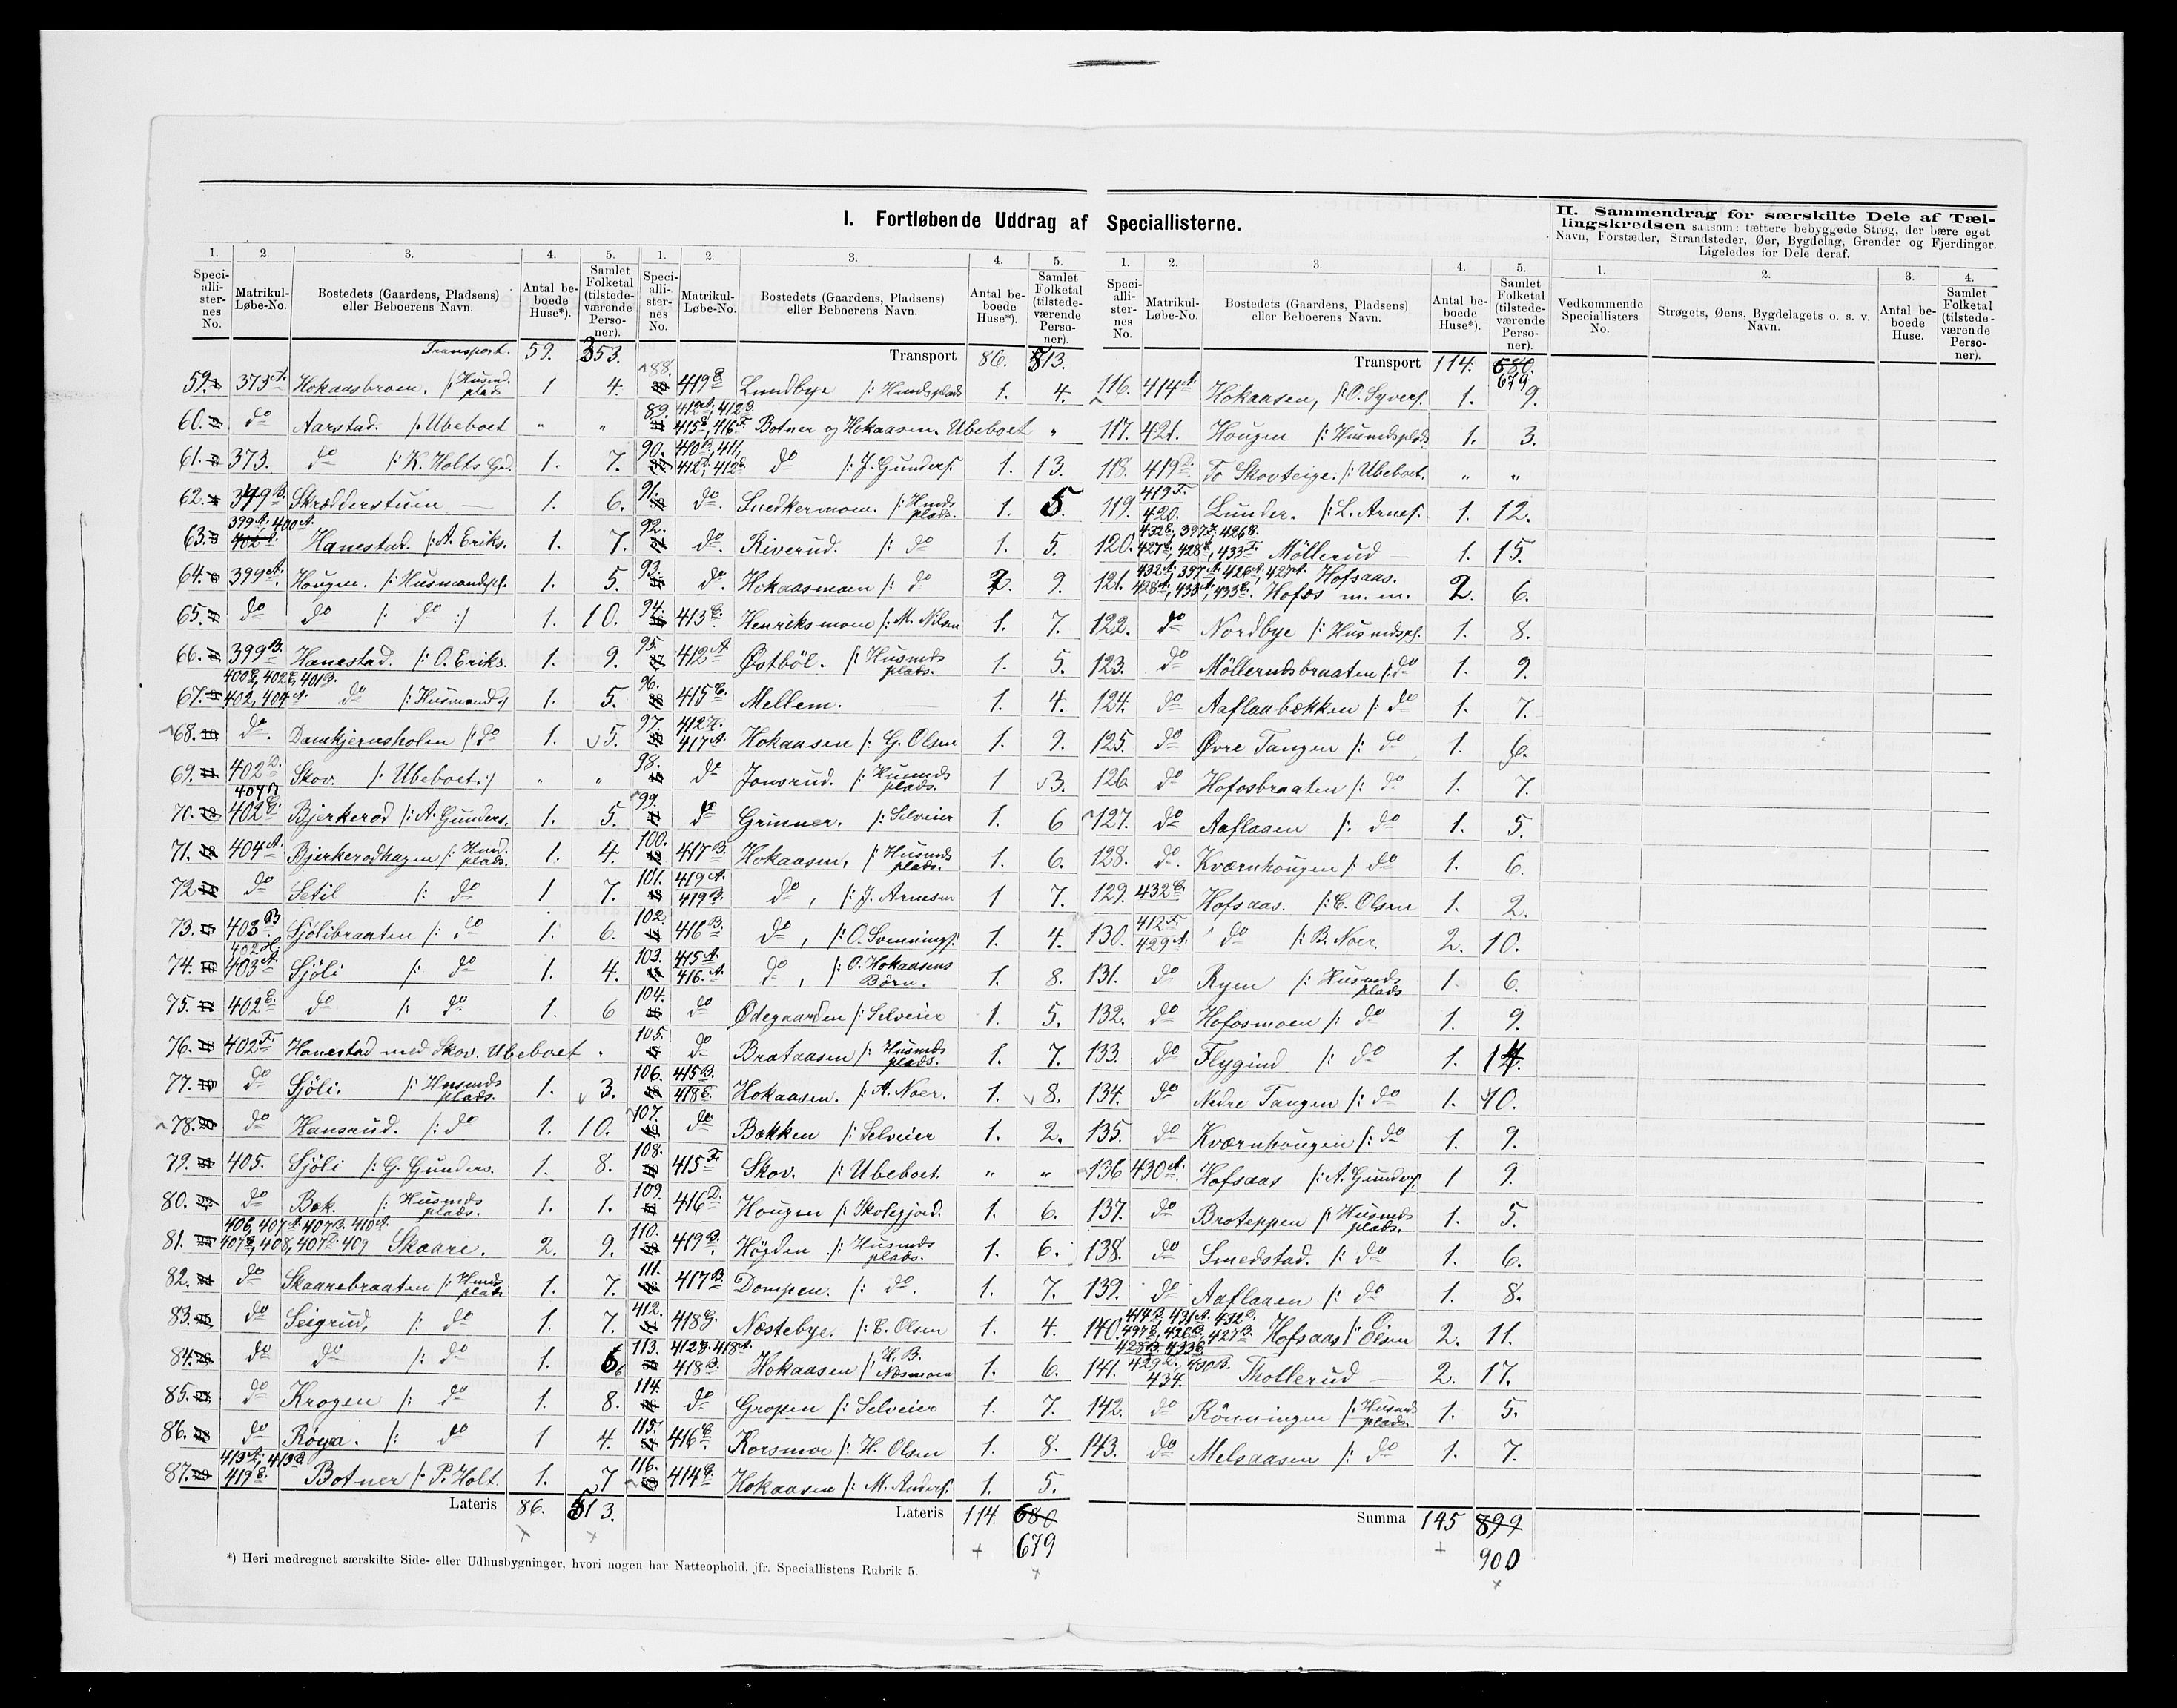 I. Fortløbende Uddrag af Speciallisterne.
II. Sammendrag for særskilte Dele af Tællingskredsen saasom: tættere bebyggede Strøg, der bære eget
Navn, Forstæder, Strandsteder, Øer, Bygdelag, Grender og Fjerdinger.
Ligeledes for Dele deraf.
1. 2. 3. 4. 5.
Speciallisternes No. Matrikul-Løbe-No. Bostedets (Gaardens, Pladsens) eller Beboerens Navn. Antal beboede Huse*). Samlet Folketal (tilstedeværende Personer).
Transport. 59. 353.
59. 373 A. Hokaasbroen. /: Husmd. plads 1 4.
60. do Aarstad. /: Ubeboet " "
61. 373. do /: K. Holts Gd. 1. 7.
62. 399 B. Skrædderstuen — 1. 6.
63. 399 A. 400 A. Hanestad. /: A. Eriks. 1. 7.
64. 399 A. Hougen. /: Husmandspl. 1. 5.
65. do do /: do :/ 1. 10.
66. 399 B. Hanestad. /: O. Eriks. 1. 9.
67. 402, 404 A. do /: Husmand :/ 1. 5.
68. do. Damkjernsholen /: do 1. 5.
69. 402 D. Skov. /: Ubeboet :/ " "
70. 402 G. Bjerkerod /: A. Gunders. 1. 5.
71. 404 A. Bjerkerodhagen /: Husmd. plads. 1. 4.
72 do Setil /: do 1 7.
73. 403 B Sjölibraaten /: do 1. 6.
74. 402 H. 403 A. Sjöli /: do 1. 4.
75. 402 E. do /: do 1. 6
76. 402 F. Hanestad med Skov. Ubeboet "
77. do Sjöli. /: Husmds plads. 1. 3.
78. do Hansrud. /: do 1. 10.
79. 405. Sjöli /: G. Gunders. 1. 8.
80. do Bæk. /: Husmds plads. 1. 1.
81. 406, 407 A. 407 B. 410 A. 407 C, 408, 407 D. 409 Skaare. 2. 9.
82. do Skaarebraaten /: Husmds plads 1. 7.
83. do Seigrud, /: do 1. 7.
84. do do /: do 1. 6
85. do Krogen /: do 1. 8.
86. do Røya. /: do 1 4.
87. 413 A, 413 B. 419 C. Botner /: P. Holt. 1. 7
Lateris 86. 513.
1. 2. 3. 4. 5.
Speciallisternes No. Matrikul-Løbe-No. Bostedets (Gaardens, Pladsens) eller Beboerens Navn. Antal beboede Huse*). Samlet Folketal (tilstedeværende Personer).
Transport 86. 513.
88. 419 C Lundbye /: Husmdsplads 1. 4.
89. 412 A, 412 B. 415 D, 416 F. Botner og Hokaasen. Ubeboet "
90. 410 B, 411, 412 D, 412 E. do /: J. Gunders. 1. 13.
91. do. Snedkermoen. /: Husmds plads. 1. 5.
92. do. Riverud. /: do 1. 5.
93. do. Hokaasmoen /: do 2. 9.
94. 413 C. Henriksmoen /: M. Nilsen 1. 7.
95. 412 A Østböl. /: Husmds plads. 1. 5.
96. 415 C. Mellem. 1. 4.
97. 417 A. Hokaasen /: G. Olsen 1. 9.
98. do Jonsrud. /: Husmds plads. 1 3.
99. do Grinner. /: Selveier 1. 6
100. 417 B. Hokaasen, /: Husmds plads. 1. 6.
101. 419 A. 419 B. do, /: J. Arnesen 1 7.
102. 416 B. do, /: O. Svennings. 1. 4.
103. 415 A. 416 A. do, /: O. Hokaasens Börn. 1. 8.
104. do Ødegaarden /: Selveier 1. 5.
105. do Brataasen /: Husmds plads. 1. 7.
106. 415 B. 418 E. Hokaasen. /: A. Noer. 1. 8.
107. do Bækken /: Selveier 1. 2.
108. 415 F. Skov. /: Ubeboet. " "
109. 416 D. Hougen /: Skolegjord. 1. 6.
110. 419 B. Högden /: Husmds plads. 1. 6.
111. 417 B. Dompen. /: do. 1. 7.
112. 418 G. Næstebye. /: C. Olsen 1. 4.
113. 418 B. Hokaasen /: H. B. Næsmoen 1. 6.
114. do Gropen /: Selveier 1. 7.
115. 416 C. Korsmoe /: H. Olsen 1. 8.
116. 414 C. Hokaasen /: M. Anders. 1. 5.
Lateris 114. 680
679
1. 2. 3. 4. 5.
Speciallisternes No. Matrikul-Løbe-No. Bostedets (Gaardens, Pladsens) eller Beboerens Navn. Antal beboede Huse*). Samlet Folketal (tilstedeværende Personer).
Transport 114. 680.
679
116. 414 A Hokaasen, /: O. Syvers. 1. 9.
117. 421. Hougen /: Husmdsplads 1. 3.
118. 419 D. To Skovteige. /: Ubeboet. " "
119. 419 F. 420. Lunder. /: L. Arnes. 1. 12.
120. 427 C, 428 C, 433 F. Möllerud — 1. 15.
121. 432 A, 397 A. 426 A, 427 A. Hofsaas. 428 A, 433 A, 433 E. Hofos m. m. 2. 6.
122. do Nordbye /: Husmdspl. 1. 8.
123. do Möllerudsbraaten /: do 1. 9.
124. do Aaflaabækken /: do 1. 7.
125. do Øvre Tangen /: do 1. 6.
126 do Hofosbraaten /: do 1. 7.
127. do Aaflaaen /: do 1. 5.
128. do. Kværnhougen /: do 1. 6.
129. 432 C. Hofsaas. /: C. Olsen 1. 2.
130. 412 F. 429 A. do /: B. Noer. 2. 10.
131. do Ryen /: Husmds plads 1. 6.
132. do Hofosmoen /: do 1. 9.
133. do Flygind /: do 1. 14.
134. do Nedre Tangen /: do 1. 10.
135. do Kværnhougen /: do 1. 9.
136 430 A. Hofsaas /: A. Gunders. 1 9.
137. do Broteppen /: Husmds plads. 1. 5.
138. do Smedstad. /: do 1. 6.
139. do Aaflaaen /: do 1. 8.
140. Hofsaas /: O. Olsen 2. 11.
141. 434. Thollerud — 2. 17.
142. do Rönningen /: Husmds plads. 1. 5.
143. do Melsaasen /: do 1. 7.
Summa 145 899
900
1. 2. 3. 4.
Vedkommende Speciallisters No. Strøgets, Øens, Bygdelagets o. s. v. Navn. Antal beboede Huse. Samlet Folketal (tilstedeværende Personer).
*) Heri medregnet særskilte Side- eller Udhusbygninger, hvori nogen har Natteophold, jfr. Speciallistens Rubrik 5.